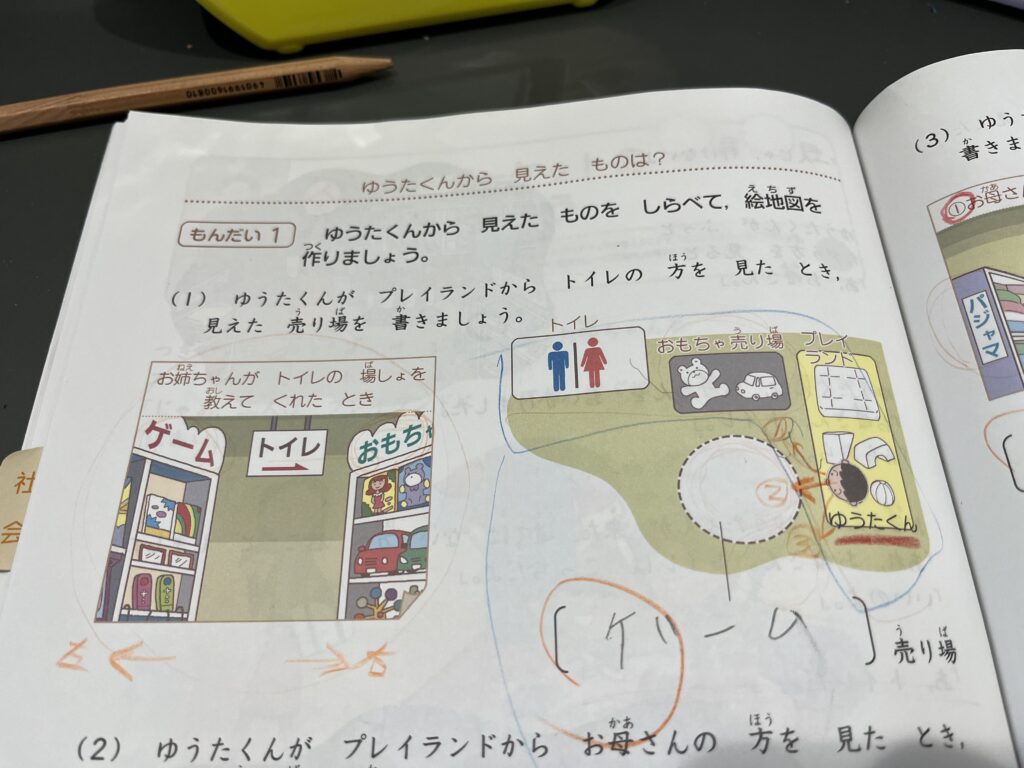 4901991600810
ゆうたくんから 見えた ものは?
もんだい 1 ゆうたくんから 見えた ものを しらべて, 絵地図を
えちず
作りましょう。
つく
(1) ゆうたくんが プレイランドから トイレの 方を 見た とき,
ほう
見えた 売り場を 書きましょう。
う ば か
お姉ちゃんが トイレの 場しょを
ねえ ば
教えて くれた とき
おし
ゲーム
トイレ
おもちゃ
左
右
トイレ
おもちゃ売り場
う ば
プレイ
ランド
①
②
③
ゆうたくん
[ゲーム] 売り場
う ば
(2) ゆうたくんが プレイランドから お母さんの 方を 見た とき,
かあ ほう
社
会
(3) ゆう
書きま
か
①お母さ
かあ
パジャマ